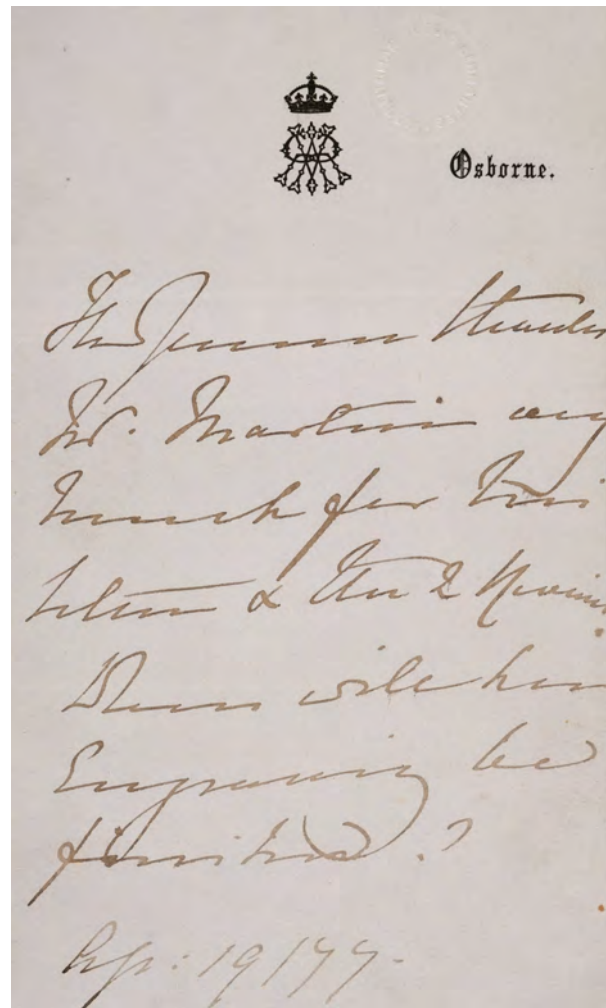 Osborne.
The Queen thanks
Mr. Martin very
much for his
letter & the 2 Reviews.
When will her
Engraving be
finished?
19 77.